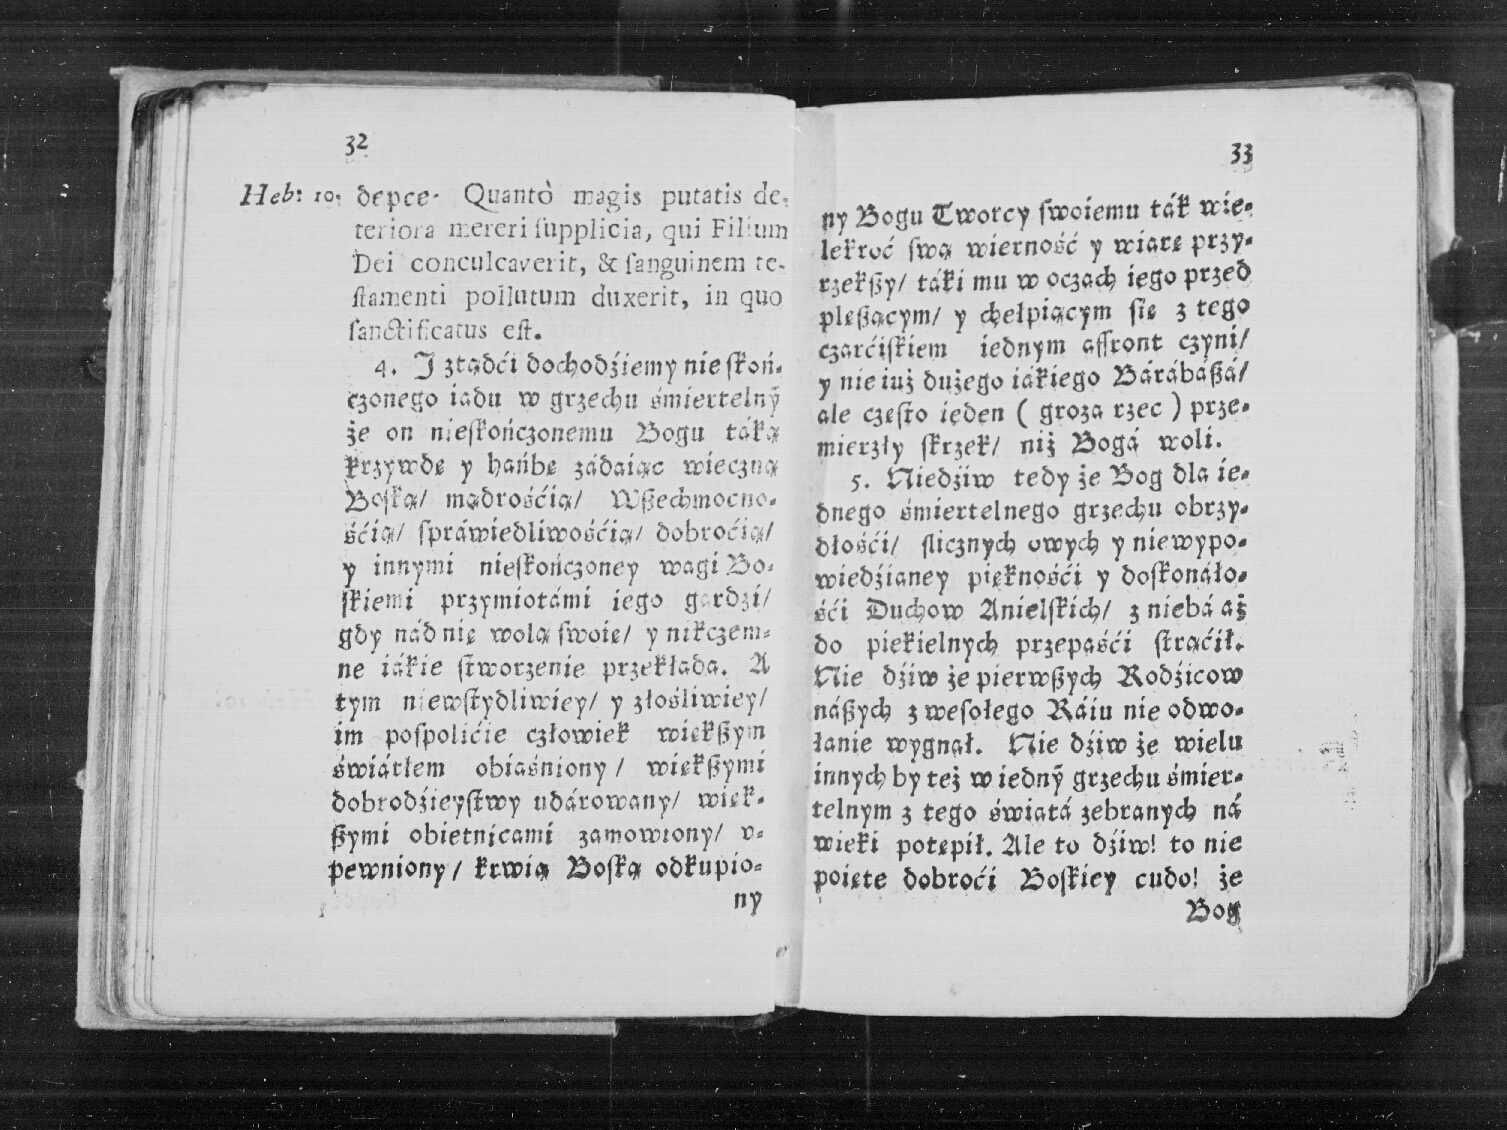 32
Heb: 10. depce. Quantò magis putatis de-
teriora mereri ſupplicia, qui Filium
Dei conculcaverit, & ſanguinem te-
ſtamenti pollutum duxerit, in quo
ſanctificatus eſt.
4. J ztądći dochodźiemy nieſkoń-
czonego iadu w grzechu śmiertelnỹ
że on nieſkończonemu Bogu táką
krzywdę y hańbę zádaiąc wieczną
Boſką/ mądrośćią/ Wßechmocno-
śćią/ ſpráwiedliwośćią/ dobroćią/
y innymi nieſkończoney wagi Bo-
ſkiemi przymiotámi iego gardzi/
gdy nád nię wolą ſwoię/ y nikczem-
ne iákie ſtworzenie przekłada. A
tym niewſtydliwiey/ y złośliwiey/
im poſpolićie człowiek więkßym
świátłem obiaśniony/ więkßymi
dobrodźieyſtwy udárowany/ więk-
ßymi obietnicámi zamowiony/ v-
pewniony/ krwią Boſką odkupio-
ny
33
ny Bogu Tworcy ſwoiemu ták wie-
lekroć ſwą wierność y wiarę przy-
rzekßy/ táki mu w oczach iego przed
pleßącym/ y chełpiącym ſię z tego
czarćiſkiem iednym affront czyni/
y nie iuż dużego iákiego Bárábáßá/
ale częſto ieden ( groza rzec ) prze-
mierzły ſkrzek/ niż Bogá woli.
5. Niedźiw tedy że Bog dla ie-
dnego śmiertelnego grzechu obrzy-
dłośći/ ſlicznych owych y niewypo-
wiedźianey pięknośći y doſkonáło-
śći Duchow Anielſkich/ z niebá aż
do piekielnych przepaśći ſtrąćił.
Nie dźiw że pierwßych Rodźicow
náßych z weſołego Ráiu nie odwo-
łanie wygnał. Nie dźiw że wielu
innych by też w iednỹ grzechu śmier-
telnym z tego świátá zebranych ná
wieki potępił. Ale to dźiw! to nie
poięte dobroći Boſkiey cudo! że
Bog